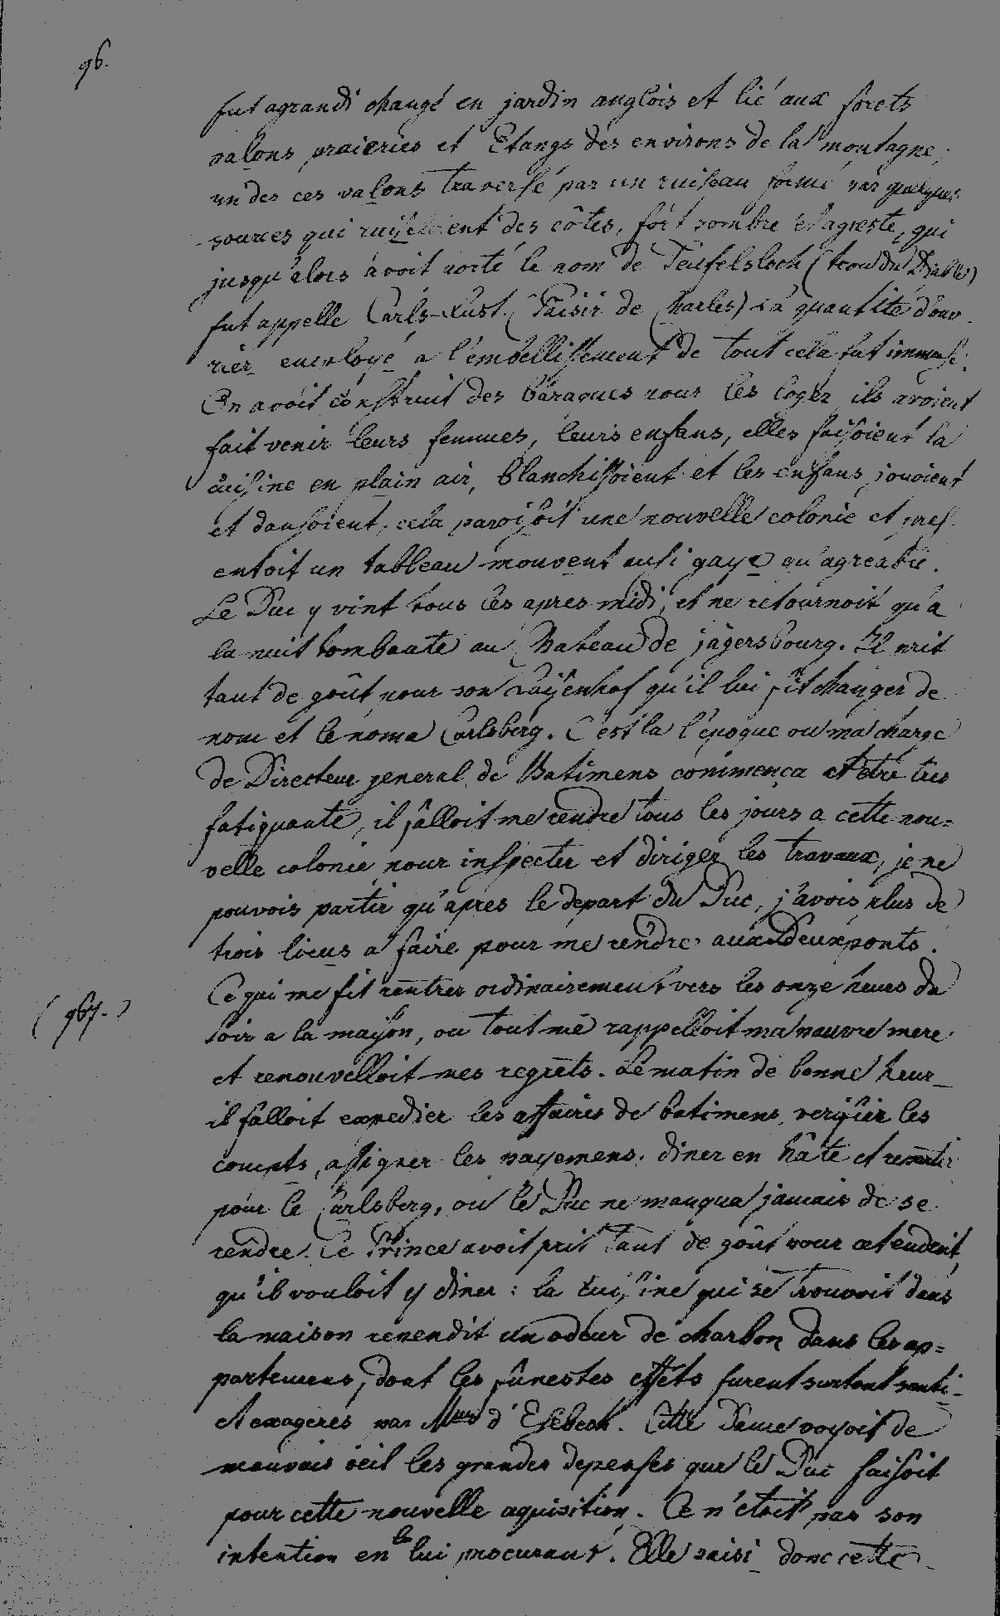 96.
fut agrandi changé en jardin anglois et lié aux forets
valons praieries et Etangs des environs de la montagne,
un des ces valons traversé par un ruisseau formé par quelques
sources qui des côtes, fort sombre et agreste, qui
jusqu'alors avoit porté le nom de Teufelsloch (trou du Diable)
fut appelle Carls-Lust (Plaisir de Charles) La quantité d'ouv
rier employé a l'embellissement de tout cela fut immense.
On avoit construit des baraques pour les loger, ils avoient
fait venir leurs femmes, leurs enfans, elles faisoient la
cuisine en plain air, blanchissoient et les enfans jouoient
et dansoient, cela paroissoit une nouvelle colonie et pres
entoit un tableau mouvent ausi gaye qu'agreable.
Le Duc y vint tous les apres midi, et ne retournoit qu'a
la nuit tombante au Chateau de jägersbourg. Il prit
tant de goût pour son Luÿenhof qu'il lui fit changer de
nom et le noma Carlsberg. C'est la l'époque ou ma charge
de Directeur general de Batimens commença et etre tres
fatiguante, il falloit me rendre tous les jours a cette nou=
velle colonie, pour inspecter et diriger les travaux, je ne
pouvois partir qu'apres le depart du Duc, j'avois plus de
trois lieus a faire pour me rendre aux Deuxponts.
Ce qui me fit rentrer ordinairement vers les onze heurs du
(967.)
soir a la maison, ou tout me rappelloit ma pauvre mere
et renouvelloit mes regrets. Le matin de bonne heur
il falloit expedier les affaires de batimens, verifier les
compts, assigner les payemens, diner en hâte et remonter
pour le Carlsberg, ou le Duc ne manqua jamais de se
rendre. Ce Prince avoit prit tant de goût pour cet endroit,
qu'il vouloit y diner : la cuisine qui se trouvoit dans
la maison rependit un odeur de charbon dans les ap=
partemens, dont les funestes effets furent surtout senti
et exagerés par Mme d'Esebeck. Cette Dame voyoit de
mauvais oeil les grandes depenses que le Duc faisoit
pour cette nouvelle aquisition. Ce n'etoit pas son
intention en le lui procurant. Elle saisi donc cette